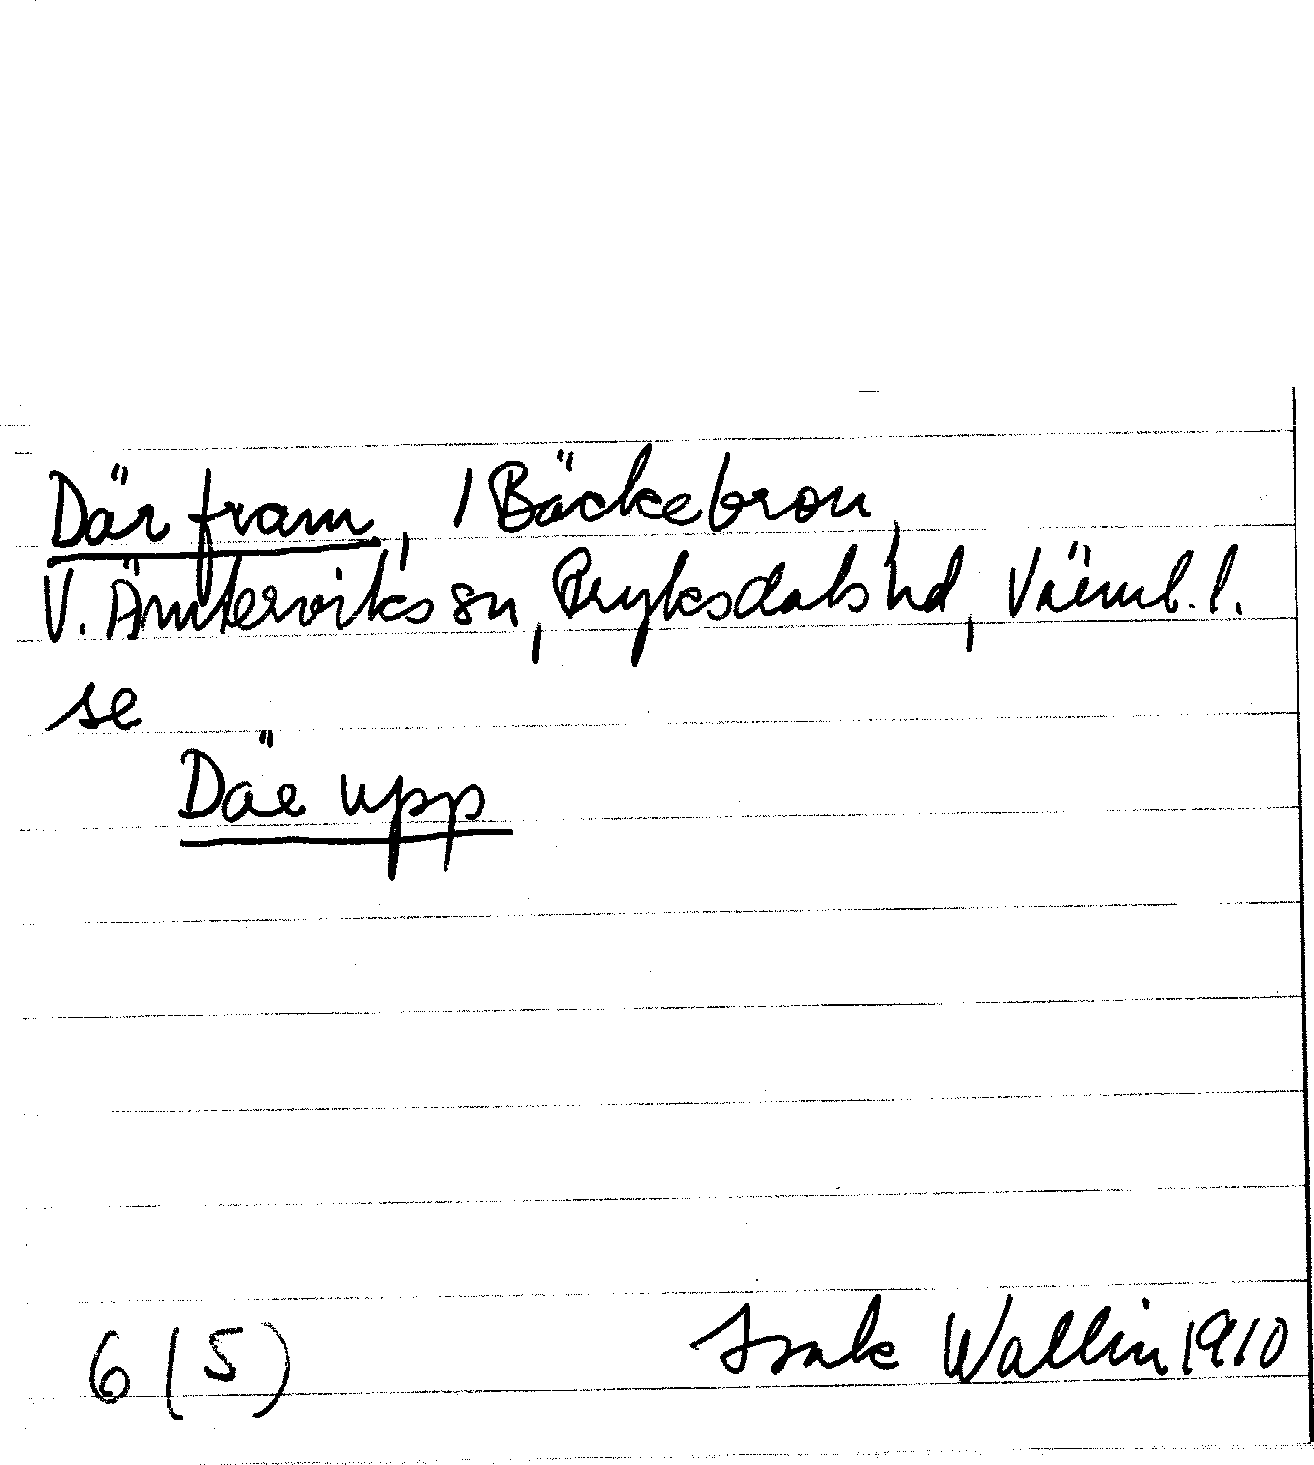 Där fram, / Bäckebron,
V. Ämterviks sn, Fryksdals hd, Värml. l.
se
Där upp
6 (5) Isak Wallin 1910